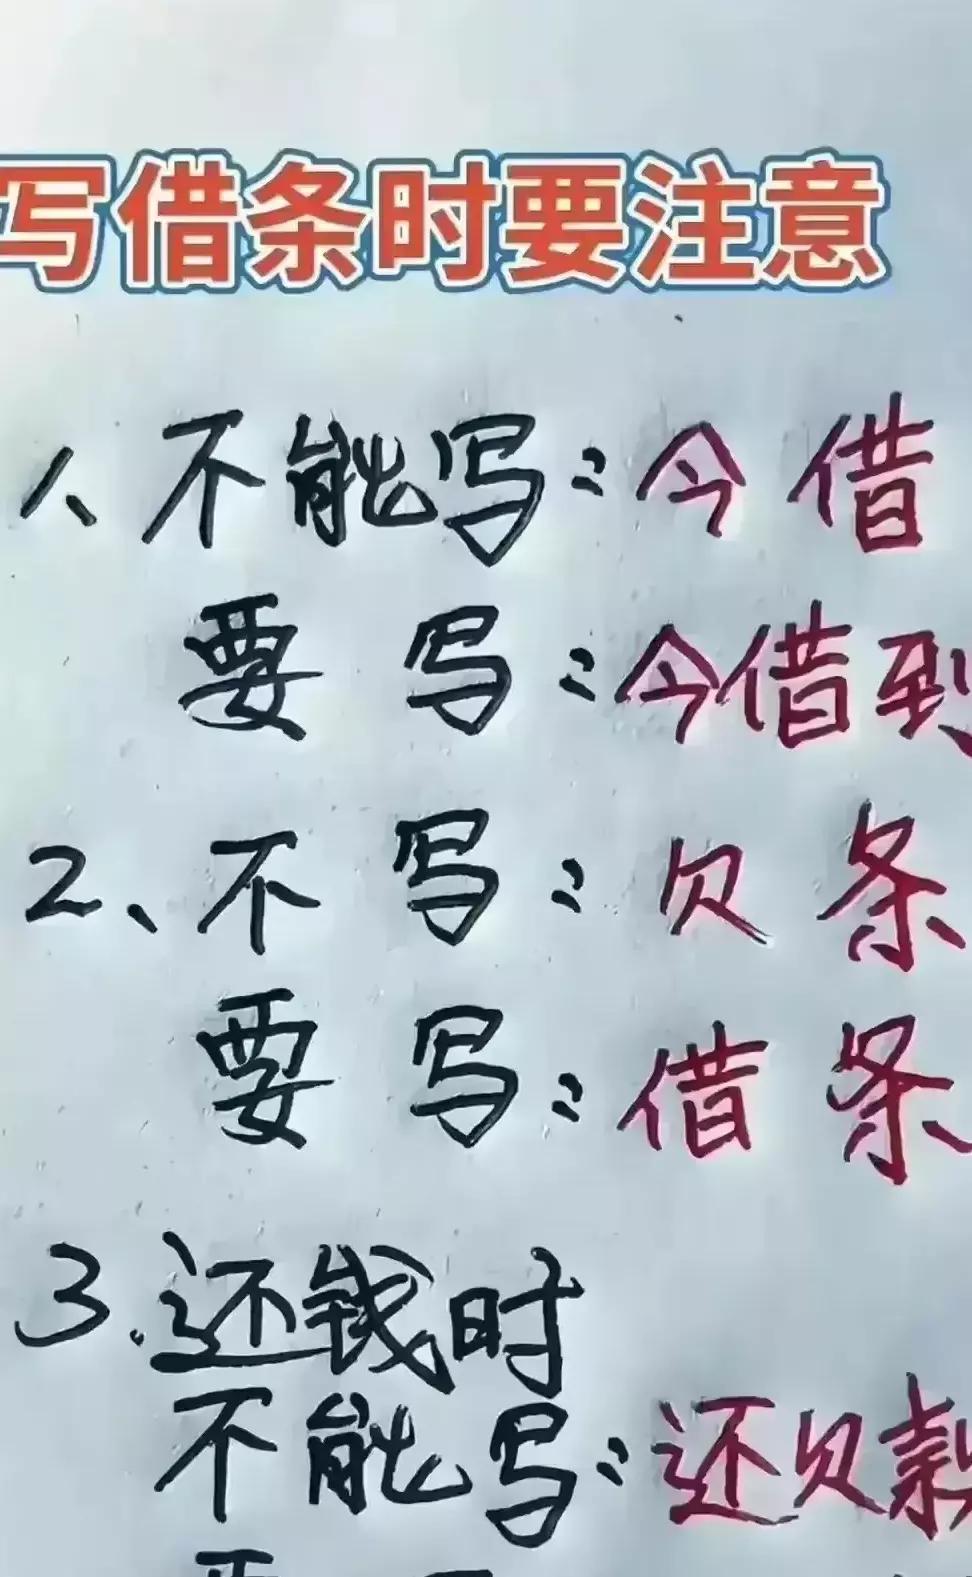 写借条时要注意
1、不能写：今借
要写：今借到
2、不写：欠条
要写：借条
3.还钱时
不能写：还欠款